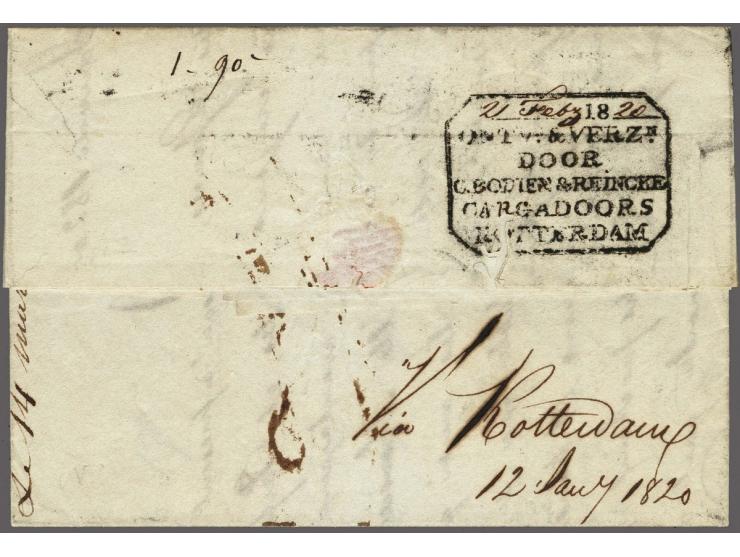 1-90
21 Feby 1820
ONTV. & VERZN
DOOR
C. BODIEN & REINCKE
CARGADOORS
ROTTERDAM
Le 14 mar
Via Rotterdam
12 Jany 1820